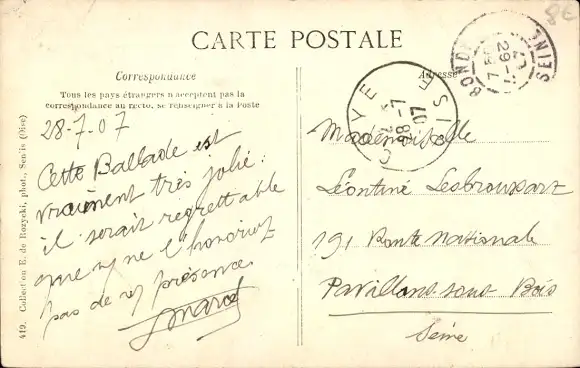 CARTE POSTALE
Correspondance
Tous les pays étrangers n'acceptent pas la
correspondance au recto, se renseigner à la Poste
28-7-07
Cette Ballade est
vraiment très jolie:
il serait regrettable
que ne l'honoriez
pas de présence
Marcel
Adresse
Mademoiselle
Léontine Lesbroussart
191 Route Nationale
Pavillons-sous-Bois
Seine
419. Collection E. de Rozycki, phot., Senlis (Oise)
COYE
OISE
28-7
07
BONDY
SEINE
29-7
07
8€